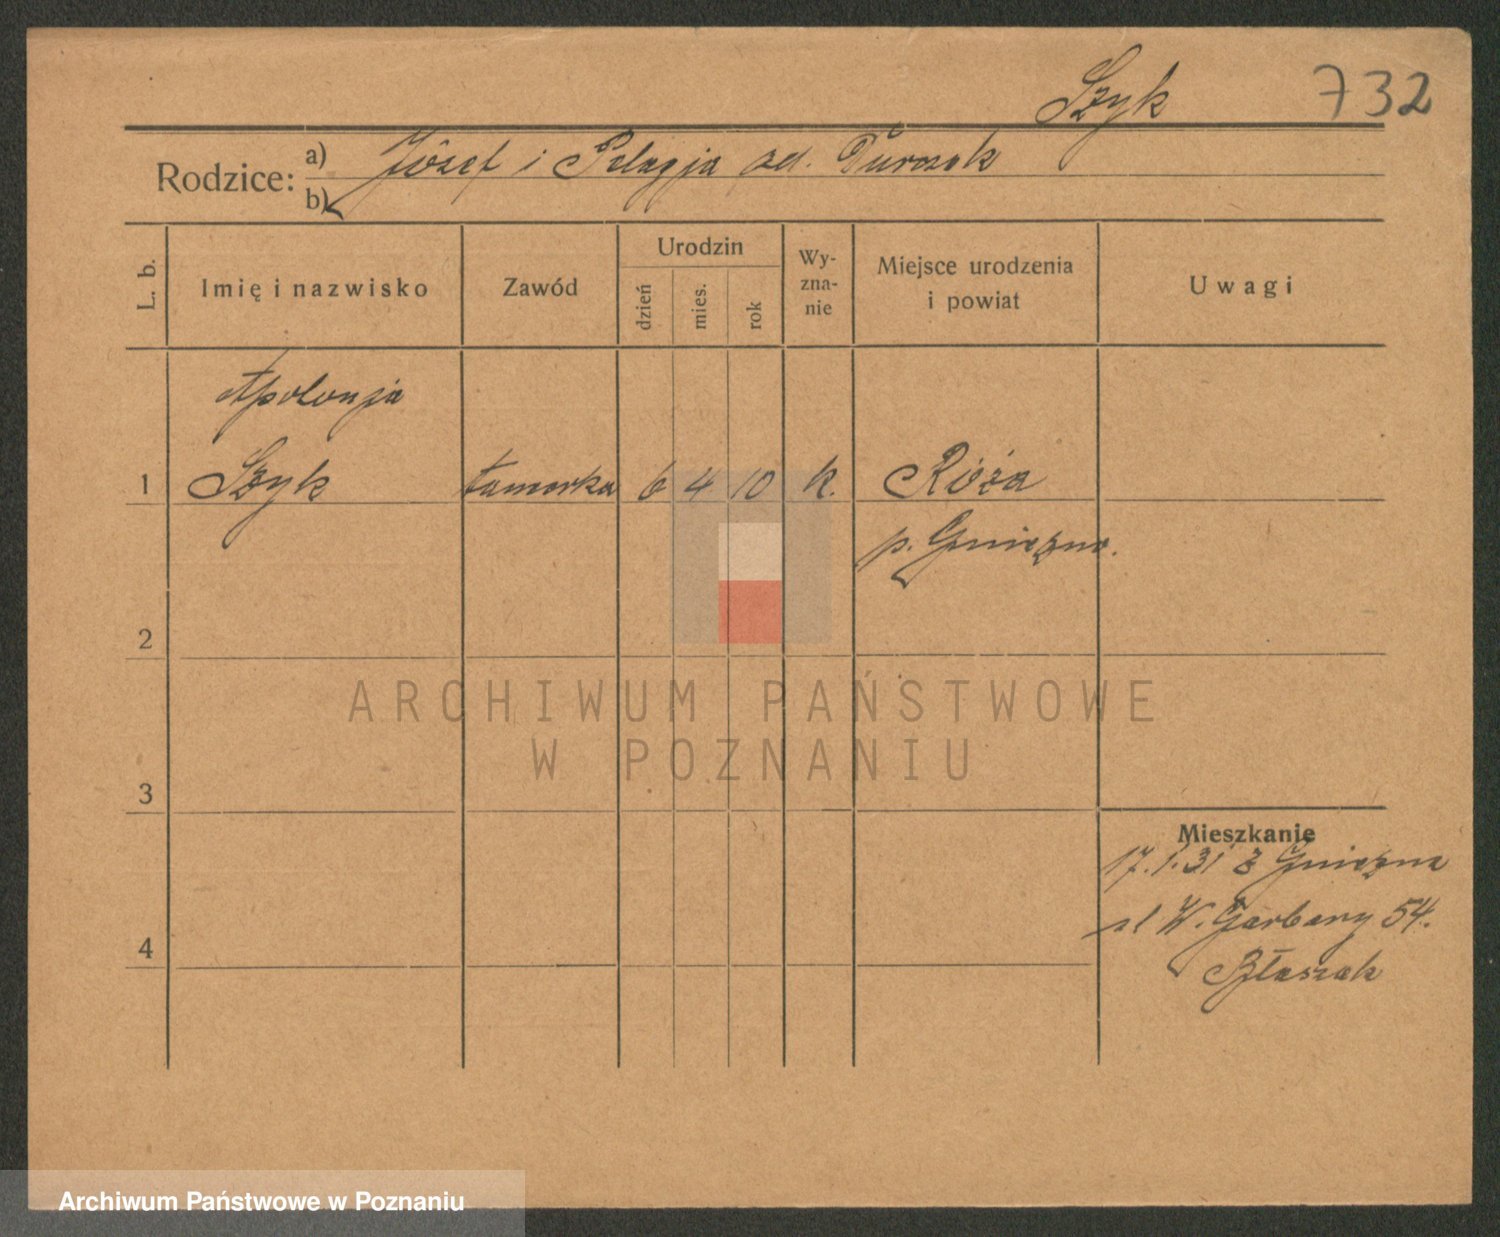 Szyk 732
Rodzice: a) Józef i Pelagja zd. Turczak
b)
L. b. Imię i nazwisko Zawód Urodzin dzień mies. rok Wy-zna-nie Miejsce urodzenia i powiat Uwagi
Apolonja
1 Szyk 6 4 10 k. Róża
p. Gniezno.
2
ARCHIWUM PAŃSTWOWE
W POZNANIU
3
Mieszkanie
17.1.31 z Gniezna
W. Garbary 54.
Błaszak
4
Archiwum Państwowe w Poznaniu